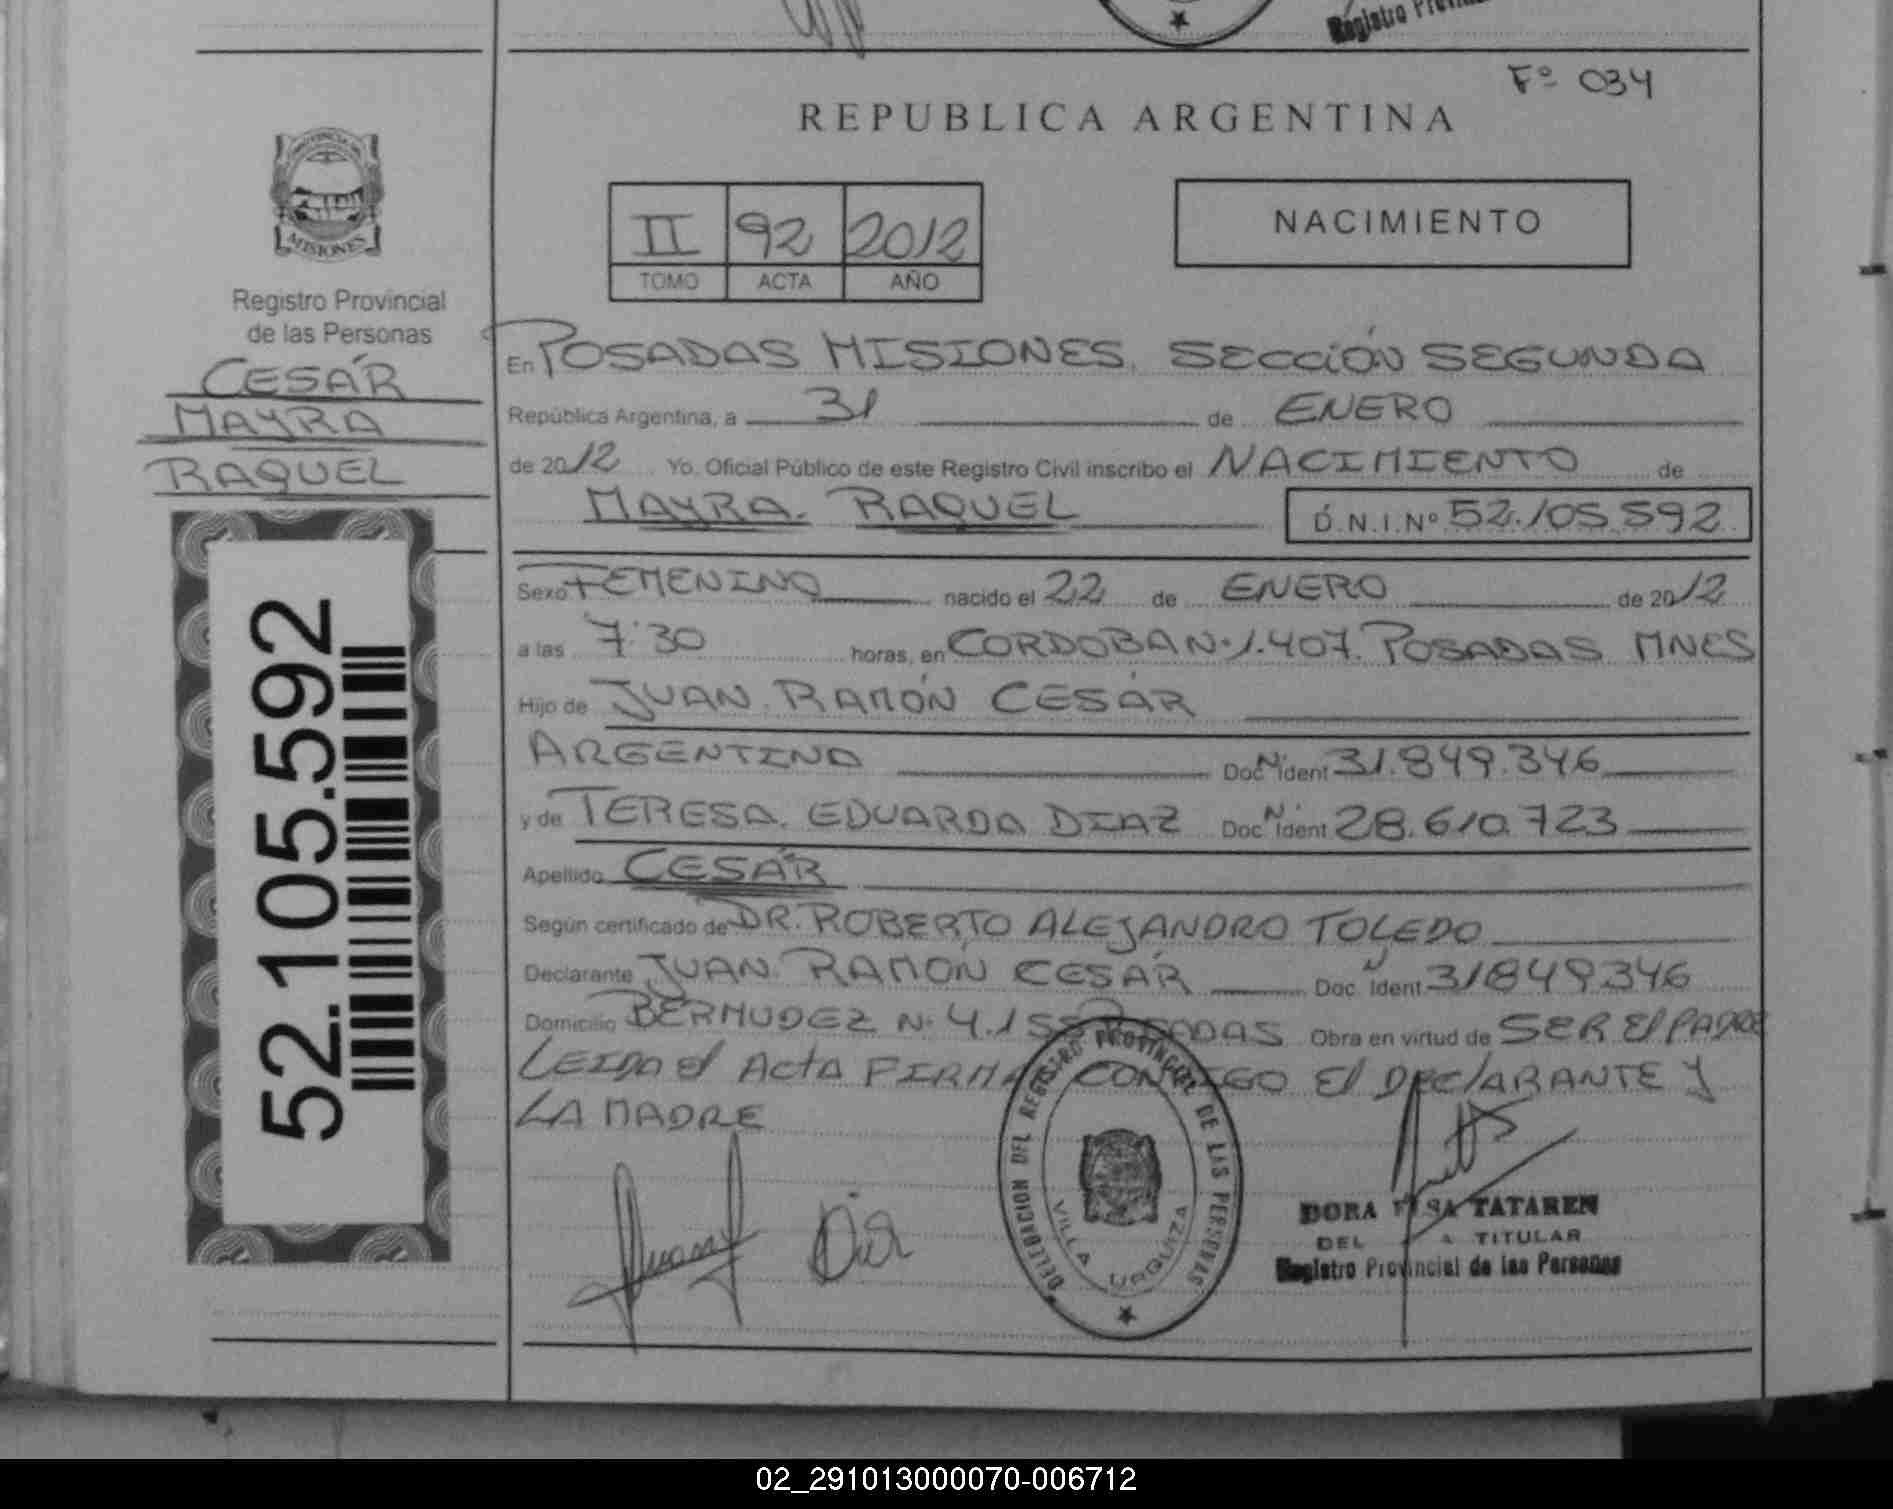 Registro Provin
Fº 034
REPUBLICA ARGENTINA
PROVINCIA DE
MISIONES
Registro Provincial
de las Personas
CESÁR
MAYRA
RAQUEL
52.105.592
II 92 2012
TOMO ACTA AÑO
NACIMIENTO
En POSADAS MISIONES. SECCIÓN SEGUNDA
República Argentina, a 31 de ENERO
de 2012 Yo. Oficial Público de este Registro Civil inscribo el NACIMIENTO de
MAYRA. RAQUEL D.N.I.Nº 52.105.592
Sexo FEMENINO nacido el 22 de ENERO de 2012
a las 7:30 horas, en CORDOBA N.1.407. POSADAS MNES
Hijo de JUAN. RAMÓN CESÁR
ARGENTINO Doc. N. Ident 31.849.346
y de TERESA. EDUARDA DIAZ Doc. N. Ident 28.610.723
Apellido CESÁR
Según certificado de DR. ROBERTO ALEJANDRO TOLEDO
Declarante JUAN. RAMÓN CESÁR Doc. N Ident 31849346
Domicilio BERMUDEZ N. 4.155 POSADAS Obra en virtud de SER El PADRE
LEIDA el ACTA FIRMA CONMIGO El DEClARANTE Y
LA MADRE
DELEGACION DEL REGISTRO PROVINCIAL DE LAS PERSONAS
VILLA URQUIZA
DORA TATAREN
DEL TITULAR
Registro Provincial de las Personas
02_291013000070-006712